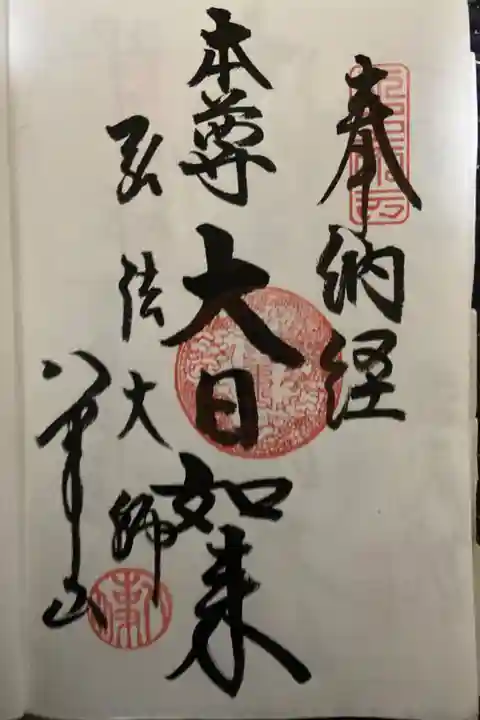 奉納経
本尊大日如来
弘法大師
八事山